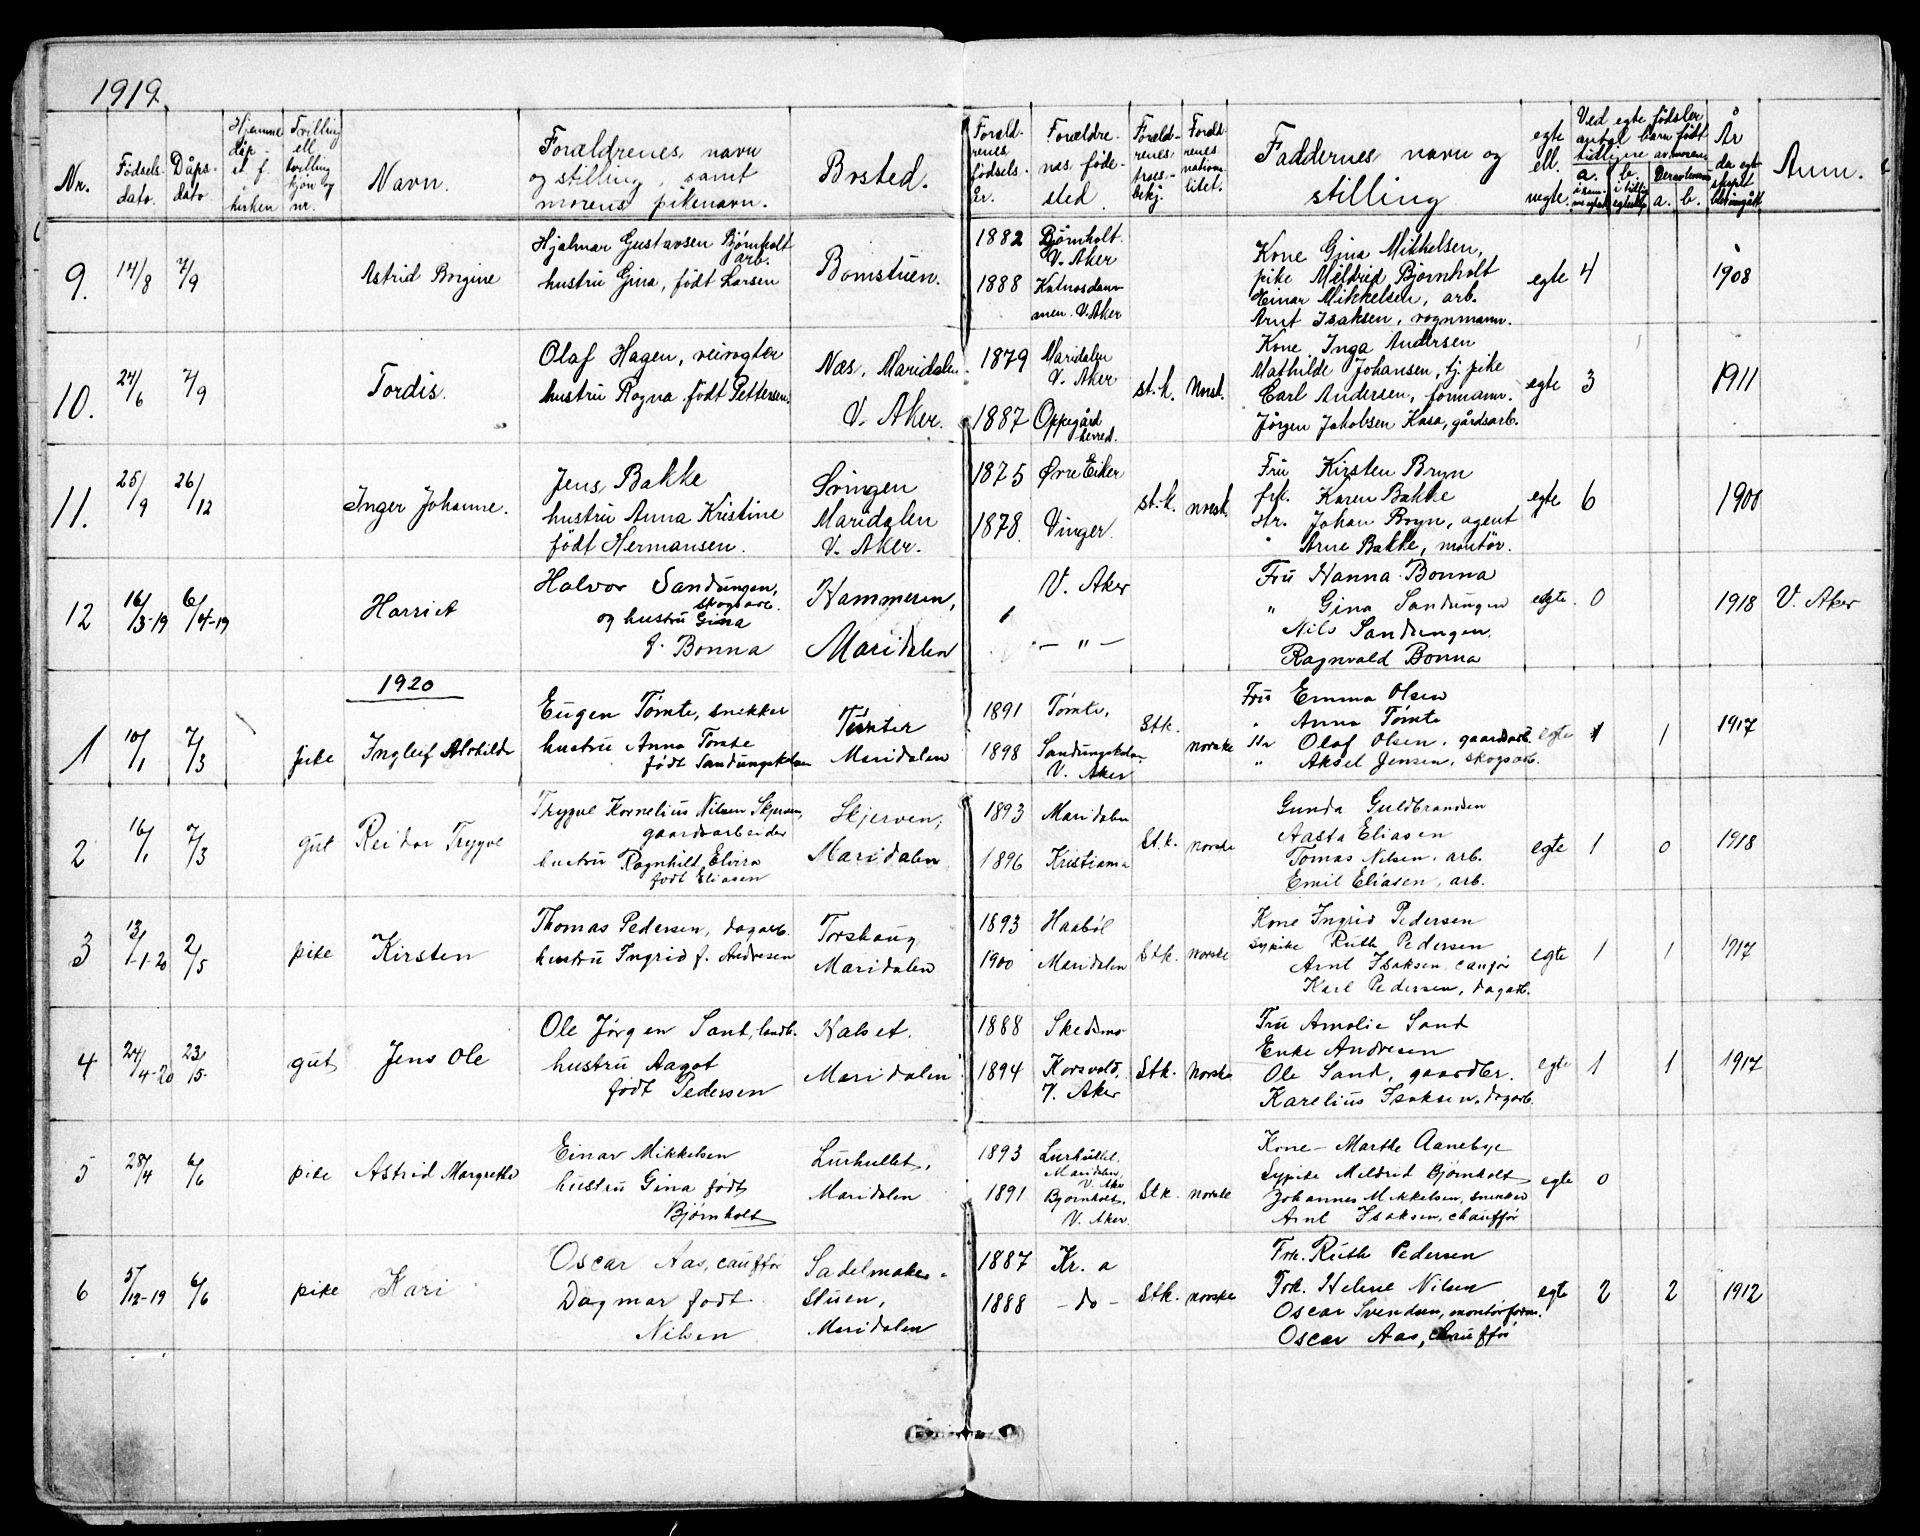 1919.
Nr.
Fødsels
dato.
Dåps-
dato.
Hjemme
dåp
st. f.
kirken
Tvilling
ell
trilling
kjøn og
nr.
Navn.
Forældrenes navn
og stilling, samt
morens pikenavn.
Bosted.
Foræld-
renes
fødsels-
år.
Forældre-
nes føde-
sted.
Foræld-
renes
troes-
bekj.
Foræld-
renes
nationa-
litet.
Faddernes navn og
stilling
egte
ell.
uegte.
Ved egte fødsler
antal barn født
tidligere av moren
a.
b.
Derav levende
a. b.
År
da egte-
skapet
blev indgått
Anm.
9. 14/8 7/9
Astrid Borgine
Hjalmar Gustavsen Bjørnholt
arb.
hustru Gina, født Larsen
Bomstuen.
1882 Bjørnholt.
V. Aker
1888 Katnosdam-
men. V. Aker
Kone Gina Mikkelsen,
pike Mildred Bjørnholt
Einar Mikkelsen, arb.
Arnt Isaksen, vognmann.
egte 4 1908
10. 24/6 7/9
Tordis.
Olaf Hagen, veivogter
hustru Ragna født Pettersen.
Næs, Maridalen
V. Aker.
1879 Maridalen
V. Aker
1887 Oppegård
herred.
st.k. Norsk.
Kone Inga Andersen
Mathilde Johansen, tj. pike
Carl Andersen, formann.
Jørgen Jakobsen Kasa, gårdsarb.
egte 3 1911
11. 25/9 26/12
Inger Johanne.
Jens Bakke
hustru Anna Kristine
født Hermansen.
Svingen
Maridalen
V. Aker.
1875 Øvre Eiker
1878. Vinger.
st.k. norsk.
Fru Kirsten Bryn
frk. Karen Bakke
Hr. Johan Bryn, agent
" Arne Bakke, montør.
egte 6 1900
12 16/3-19 6/4-19
Harriet
Halvor Sandungen,
skogsarb.
og hustru Gina
f. Bonna
Hammeren,
Maridalen
V. Aker
— " —
Fru Hanna Bonna
" Gina Sandungen
Nils Sandungen.
Ragnvald Bonna
egte. 0 1918 V. Aker
1920
1 10/1 7/3 pike Ingleif Alvhilde
Eugen Tømte, snekker
hustru Anna Tømte
født Sandungskalven
Tømter
Maridalen
1891 Tømte,
1898 Sandungskalven
V. Aker
Stk. norske
Fru Emma Olsen
" Anna Tømte
Hr Olaf Olsen, gaardsarb.
" Aksel Jensen, skogsarb.
egte 1 1 1917
2 16/1 7/3 gut Reidar Trygve
Trygve Kornelius Nilsen Skjerven,
gaardsarbeider
hustru Ragnhild Elvira
født Eliasen
Skjerven,
Maridalen
1893 Maridalen
1896 Kristiania
St.k. norske
Gunda Guldbrandsen
Aasta Eliasen
Tomas Nilsen, arb.
Emil Eliasen, arb.
egte 1 0 1918
3 13/1-20 2/5 pike Kirsten
Thomas Pedersen, dagarb.
hustru Ingrid f. Andresen
Torshaug
Maridalen
1893 Haabøl
1900 Maridalen
Stk. norske
Kone Ingrid Pedersen
sypike Ruth Pedersen
Arnt Isaksen, caufför
Karl Pedersen, dagarb.
egte 1 1 1917
4 24/4-20 23/5 gut Jens Ole
Ole Jørgen Sand, landb.
hustru Aagot
født Pedersen
Halset.
Maridalen
1888 Skedsmo
1894 Korsvold,
V. Aker
Stk. Norske
Fru Amalie Sand
Enke Andresen
Ole Sand, gaardbr.
Karelius Isaksen, dagarb.
egte 1 1 1917
5 28/4 6/6 pike Astrid Margrethe
Einar Mikkelsen
hustru Gina født
Bjørnholt
Lurhullet,
Maridalen
1893 Lurhullet,
Maridalen,
V. Aker
1891 Bjørnholt,
V. Aker.
Stk. norske
Kone Marthe Aanebye
Sypike Mildrid Bjørnholt
Johannes Mikkelsen, snekker
Arnt Isaksen, chaufför
egte 0
6 5/12-19 6/6 pike Kari
Oscar Aas, caufför
Dagmar født
Nilsen
Sadelmaker-
stuen,
Maridalen
1887 Kr. a
1888 - do -
Stk. norske
Frk. Ruth Pedersen
Frk. Helene Nilsen
Oscar Svendsen, montørform.
Oscar Aas, chaufför
egte 2 2 1912